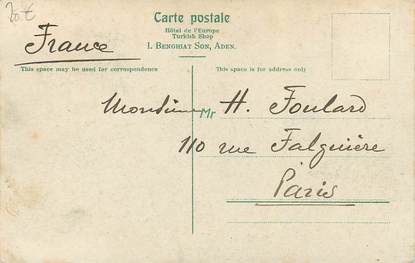 20 €
Carte postale
Hôtel de l'Europe
Turkish Shop
I. Benghiat Son, Aden.
France
This space may be used for correspondence
This space is for address.
Monsieur Mr H. Foulard
110 rue Falguière
Paris